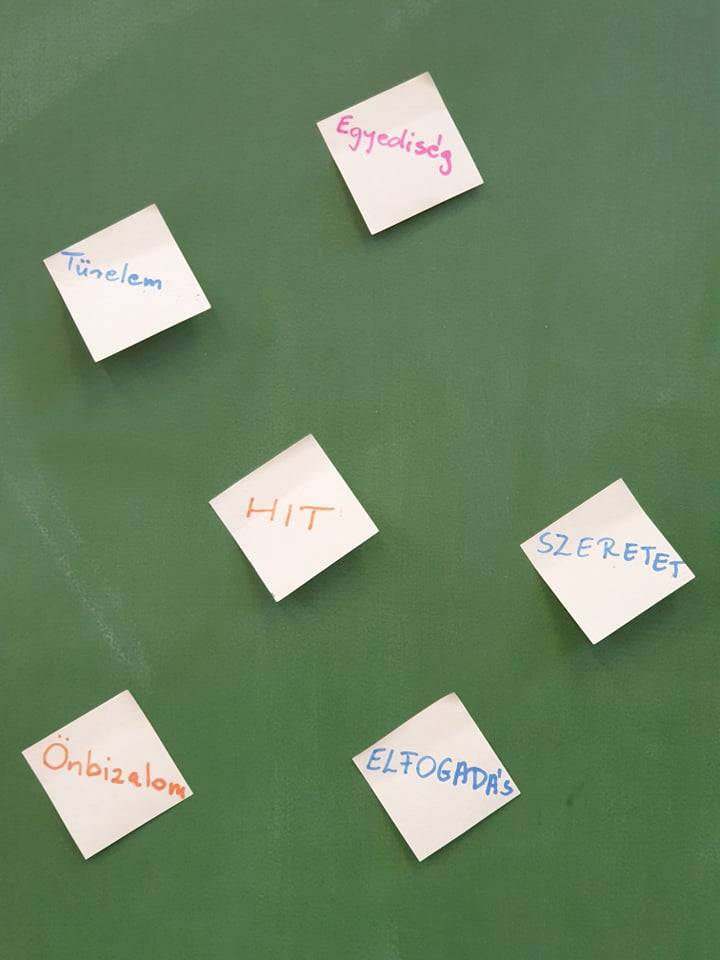 Egyediség
Türelem
HIT
SZERETET
Önbizalom
ELFOGADÁS